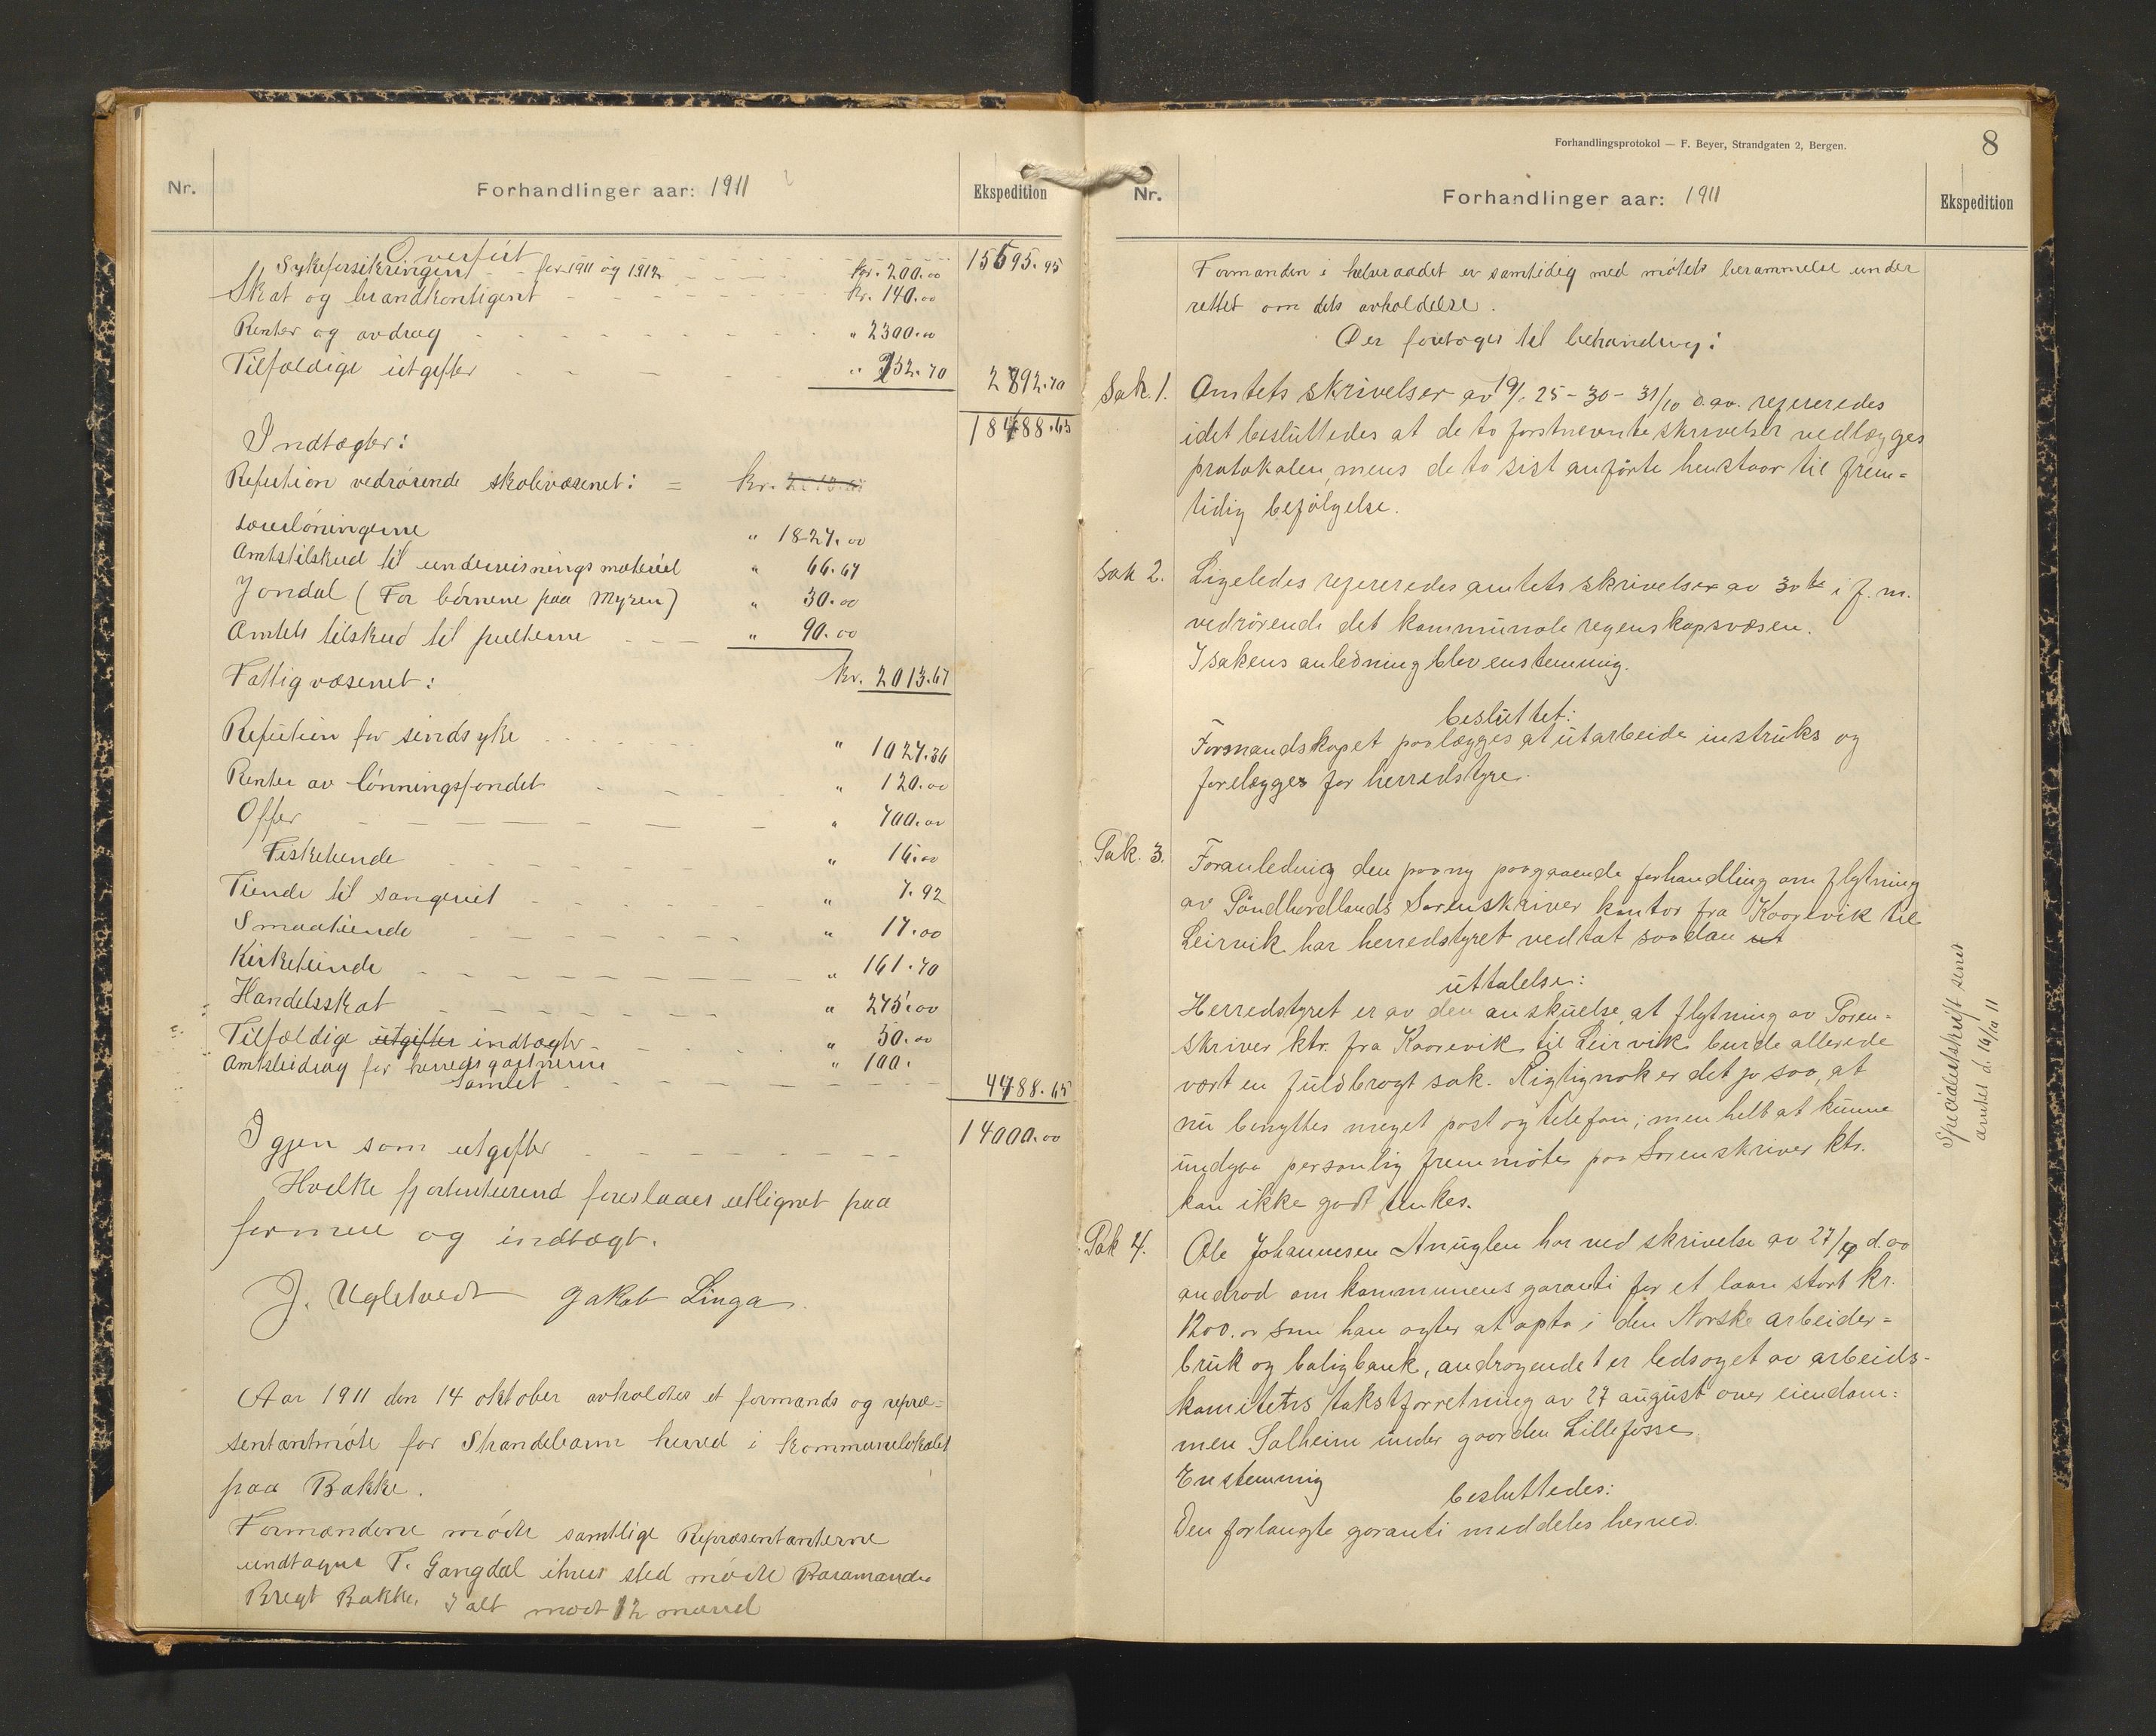 Nr.
Forhandlinger aar: 1911
Ekspedition
Overført 15595.95
Sykeforsikringen for 1911 og 1912 kr. 200.00
Skat og brandkontigent kr. 140.00
Renter og avdrag " 2300.00
Tilfældige utgifter " 252.70 2892.70
18488.65
Indtægter:
Refusion vedrørende skolevæsenet: = kr.
lærerlønningerne " 1827.00
Amtstilskud til undervisnings materiel " 66.67
Jondal (For børnene paa Myren) " 30.00
Amtets tilskud til pulterne " 90.00
Fattigvæsenet: kr. 2013.67
Refusion for sindsyke " 1027.36
Renter av lønningsfondet " 120.00
Offer " 700.00
Fisketiende " 16.00
Tiende til sangeriet " 7.92
Smaatiende " 17.00
Kirketiende " 161.70
Handelsskat " 275.00
Tilfældige utgifter indtægter " 50.00
Amtsbidrag for herredsgartnerne " 100.
Samlet 4488.65
Igjen som utgifter 14000.00
Hvilke fjortentusend foreslaaes utlignet paa
formue og indtægt.
J. Ugletvedt Jakob Linga
Aar 1911 den 14 oktober avholdtes et formands og repræ-
sentantmøte for Strandebarm herred i kommunelokalet
paa Bakke.
Formændene møtte samtlige Repræsentanterne
undtagne T. Gangdal i hvis sted møtte Varamanden
Bregt Bakke. I alt møtt 12 mænd
Forhandlingsprotokol — F. Beyer, Strandgaten 2, Bergen.
8
Nr.
Forhandlinger aar: 1911
Ekspedition
Formanden i helseraadet er samtidig med møtets berammelse under
rettet om dets avholdelse.
Der foretoges til behandling:
Sak. 1. Amtets skrivelser av 19/- 25 - 30 - 31/10 d.a. refereredes
idet besluttedes at de to førstnevnte skrivelser vedlægges
protokolen, mens de to sist anførte henstaar til frem-
tidig befølgelse.
Sak 2. Ligeledes refereredes amtets skrivelser av 30te i f. m.
vedrørende det kommunale regenskapsvæsen.
I sakens anledning blev enstemmig.
besluttet:
Formandskapet paalægges at utarbeide instruks og
forelægges for herredstyre.
Sak. 3. Foranledning den paany paagaaende forhandling om flytning
av Søndhordlands Sorenskriver kontor fra Kaarevik til
Leirvik har herredstyret vedtat saadan ut
uttalelse:
Herredstyret er av den anskuelse, at flytning av Soren-
skriver ktr. fra Kaarevik til Leirvik burde allerede
vært en fuldbragt sak. Rigtignok er det jo saa, at
nu benyttes meget post og telefon; men helt at kunne
undgaa personlig fremmøte paa Sorenskriver ktr.
kan ikke godt tenkes.
Specialutskrift sent
amtet d. 16/10 11
Sak 4. Ole Johannesen Anuglen har ved skrivelse av 27/9 d. aa
androd om kommunens garanti for et laan stort kr.
1200.00 som han agter at opta i den Norske arbeider-
bruk og boligbank, andragendet er ledsaget av arbeids-
komitetns takstforretning av 27 august over eiendom-
men Solheim under gaarden Lillefosse.
Enstemmig
besluttedes:
Den forlangte garanti meddeles herved.